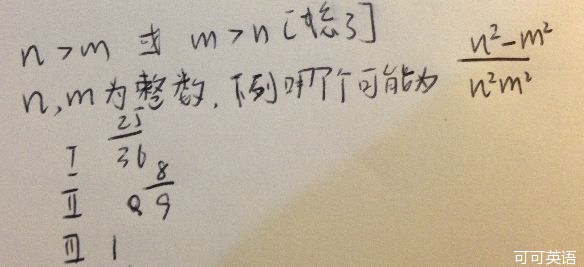 n>m 或 m>n [忘了]
n,m为整数,下列哪个可能为 n²-m²/n²m²
I 25/36
II 8/9
III 1
可可英语